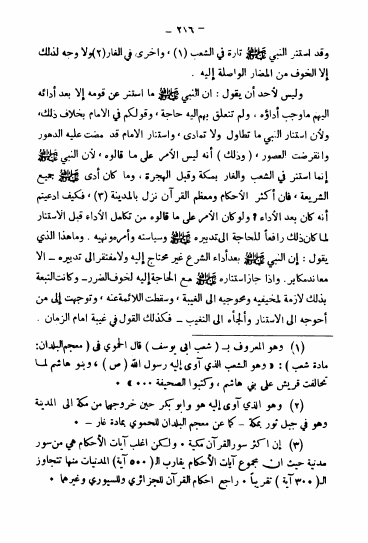 - ٢١٦ -
وقد استتر النبي ﷺ تارة في الشعب (١) ، واخرى في الغار(٢)ولا وجه لذلك
إلا الخوف من المضار الواصلة إليه .
وليس لأحد أن يقول : ان النبي ﷺ ما استتر عن قومه إلا بعد أدائه
اليهم ماوجب أداؤه ، ولم تتعلق بهم اليه حاجة ، وقولكم في الامام بخلاف ذلك،
ولأن استتار النبي ما تطاول ولا تمادى ، واستتار الامام قد مضت عليه الدهور
وانقرضت العصور ، (وذلك) أنه ليس الأمر على ما قالوه ، لأن النبي ﷺ
إنما استتر في الشعب والغار بمكة وقبل الهجرة ، وما كان أدى ﷺ جميع
الشريعة ، فان أكثر الأحكام ومعظم القرآن نزل بالمدينة (٣) ، فكيف ادعيتم
أنه كان بعد الأداء ؟ ولو كان الأمر على ما قالوه من تكامل الأداء قبل الاستتار
لما كان ذلك رافعاً للحاجة الى تدبيره ﷺ وسياسته وأمره ونهيه . وما هذا الذي
يقول : إن النبي ﷺ بعد أداء الشرع غير محتاج إليه ولا مفتقر الى تدبيره — الا
معاند مكابر . واذا جاز استتاره ﷺ مع الحاجة اليه لخوف الضرر ــ وكانت التبعة
بذلك لازمة لمخيفيه ومحوجيه الى الغيبة ، وسقطت اللائمة عنه ، وتوجهت إلى من
أحوجه الى الاستتار وألجأه الى التغيب ــ فكذلك القول في غيبة امام الزمان .
(١) وهو المعروف بـ ( شعب ابى يوسف ) قال الحموي في ( معجم البلدان:
مادة شعب ) : « وهو الشعب الذي آوى إليه رسول الله ( ص ) ، وبنو هاشم لما
تحالفت قريش على بني هاشم ، وكتبوا الصحيفة ٠٠٠ »
(٢) وهو الذي آوى إليه هو وابو بكر حين خروجها من مكة الى المدينة
وهو في جبل ثور بمكة - كما عن معجم البلدان للحموي بمادة غار -
(٣) إن أكثر سور القرآن مكية ٠ ولكن اغلب آيات الأحكام هي من سور
مدنية حيث ان مجموع آيات الأحكام يقارب الـ( ٥٠٠ آية) المدنيات منها تتجاوز
الـ( ٣٠٠ آية ) تقريباً ٠ راجع احكام القرآن للجزائري وللسيوري وغيرهما ٠